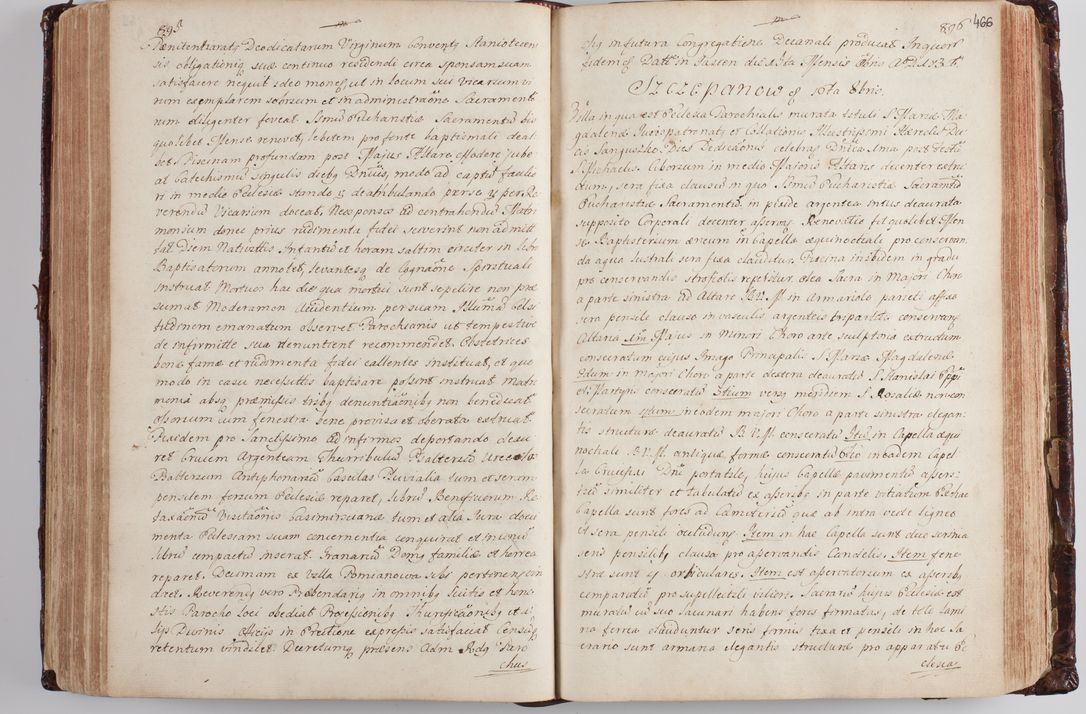 895
Pænitentiaraty Deodicatarum Virginum Conventy Staniotecen
sis obligationiq suæ continuo residendi circa sponsam suam
satisfacere nequit ideo monet, ut in locum sui Vicarium vi
rum exemplarem soorsum et in administraõne Sacrament
rum diligenter foveat. Ssmū Eucharistiæ Sacramentū bis
quolibet Mense renovet, lebetem pro fonte baptismali deal
bet Piscinam profundam post Majus Altare
at Catechismū Singulis dieby Dnicis, modo ad captū facilio
ri in medio Ecclesiæ stando et deambulando per se et per Re
verendū Vicarium doceat, Neosponsos ad contrahendū Matri
monium donec prius rudimenta fidei sciverint non admitt
tat Diem Nativittis Infantiū et horam saltim circiter in libro
Baptisatorum annotet, levantesq de Cognaõne Spirituali
instruat Mortuos hac die qua mortui sunt sepelire non præ
sumat Moderamen Accidentium per suam Illmã Celsi
tudinem emanatum observet Parochianis ut tempestive
de infirmitte sua denuntient recommendet. Obstetrices
bonæ famæ et rudimenta fidei callentes instituat, et quo
modo in casu necessittis baptisare possint instruat Matri
monia absq præmissis triby denuntiaõniby non benedicat
Ossorium cum fenestra bene provisa et oberata extruat.
Pixidem pro Sanctissimo ad infirmos deportando deau
ret Crucem Argenteam Thuribulū Psalteriū
Balteruum Antiphonariū Casulas Pluvialia tum et seram
pensilem forium Ecclesiæ reparet, libru Beneficiorum Re
taxaõnū Visitaõnis Casimirscianæ tum et alia Jura docu
menta Ecclesiam suam concernentia conquirat et in unū
librū compactū inserat. Granariū Domy familiæ et horrea
reparet, Decimam ex Villa Pomianowa sibi pertinen, vin
dicet. Reverendy vero Præbendariy in omniby licitis et hone
stis Parocho loci obediat Processioniby Thurificaõniby et a
lys Divinis Officys in Erectione expressis satisfaciat Censūq
retentum vindicet. Decretumq præsens Adm Rdy Paro
chus

896 466
Suy in futura Congregatione Decanali producat In quor
fidem et Datt in Jasien die Ita Mensis 8bris A D 1783 t.
SZCZEPANOW et 10ta 8bris.
Villa in qua est Ecclesia Parochialis murata tituli S Mariæ Ma
gdalenæ Juris patronaty et Collationis Illustrissimi Hieroli Du
cis Sanguszko. Dies Dedicaõnis celebray Dnica Ima post Festū
S. Michaelis. Ciborium in medio Majoris Altaris decenter extru
ctum, sera fixa clausū in quo Ssmū Eucharistiæ Sacramtū
Eucharistiæ Sacramentū, in pixide argentea intus deaurata
supposito Corporali decenter asservay. Renovatio fit quolibet Men
se. Baptisterium æneum in Capella æquinoctiali pro conservan
da aqua lustrali sera fixa clauditur. Piscina inibidem in gradu
pro conservandis strofiolis reperitur. Olea Sacra in Majori Choro
a parte sinistra ad Altare B.V.M. in armariolo parieti affixo
sera pensile clauso in vasculis argenteis tripartitis conservay.
Altaria Im Majus in Minori Choro arte sculptoria extructum
consecratum cujus Imago Principalis S Mariæ Magdalenæ
2dum in Majori Choro a parte dextera deauratū S. Stanislai Eppi
et Martyris consecratū 3tium versy meridiem S. Rosaliæ non con
secratum 4tum in eodem majori Choro a parte sinistra elegan
tis structuræ deauratū B V.M. consecratū Ita in Capella æqui
noctiali B.V.M. antiquæ formæ consecratū 6to in eadem Capel
la Crucifixi Dni portatile, hujus Capellæ pavimentū asseri
tiū similiter et tabulatū ex asseribus in parte vitiatum Ex hac
Capella sunt fores ad Cæmiteriū quæ ab intra vecte ligneo
et sera pensili occludūn, Item in hac Capella sunt duo scrinia
seris pensiliby clausa pro asservandis Candelis, Item fene
stræ sunt 4 orbiculares. Item est asservatorium ex asseriby
comparatū pro supellectili ibidem. Sacrariū hujus Ecclesiæ est
muratū cū suo Lacunari habens fores firmatas, de tili lami
na ferrea clauduntur seris firmis fixa et pensili in hoc Sa
crario sunt armaria elegantis structuræ pro apparatu Ec
clesiæ